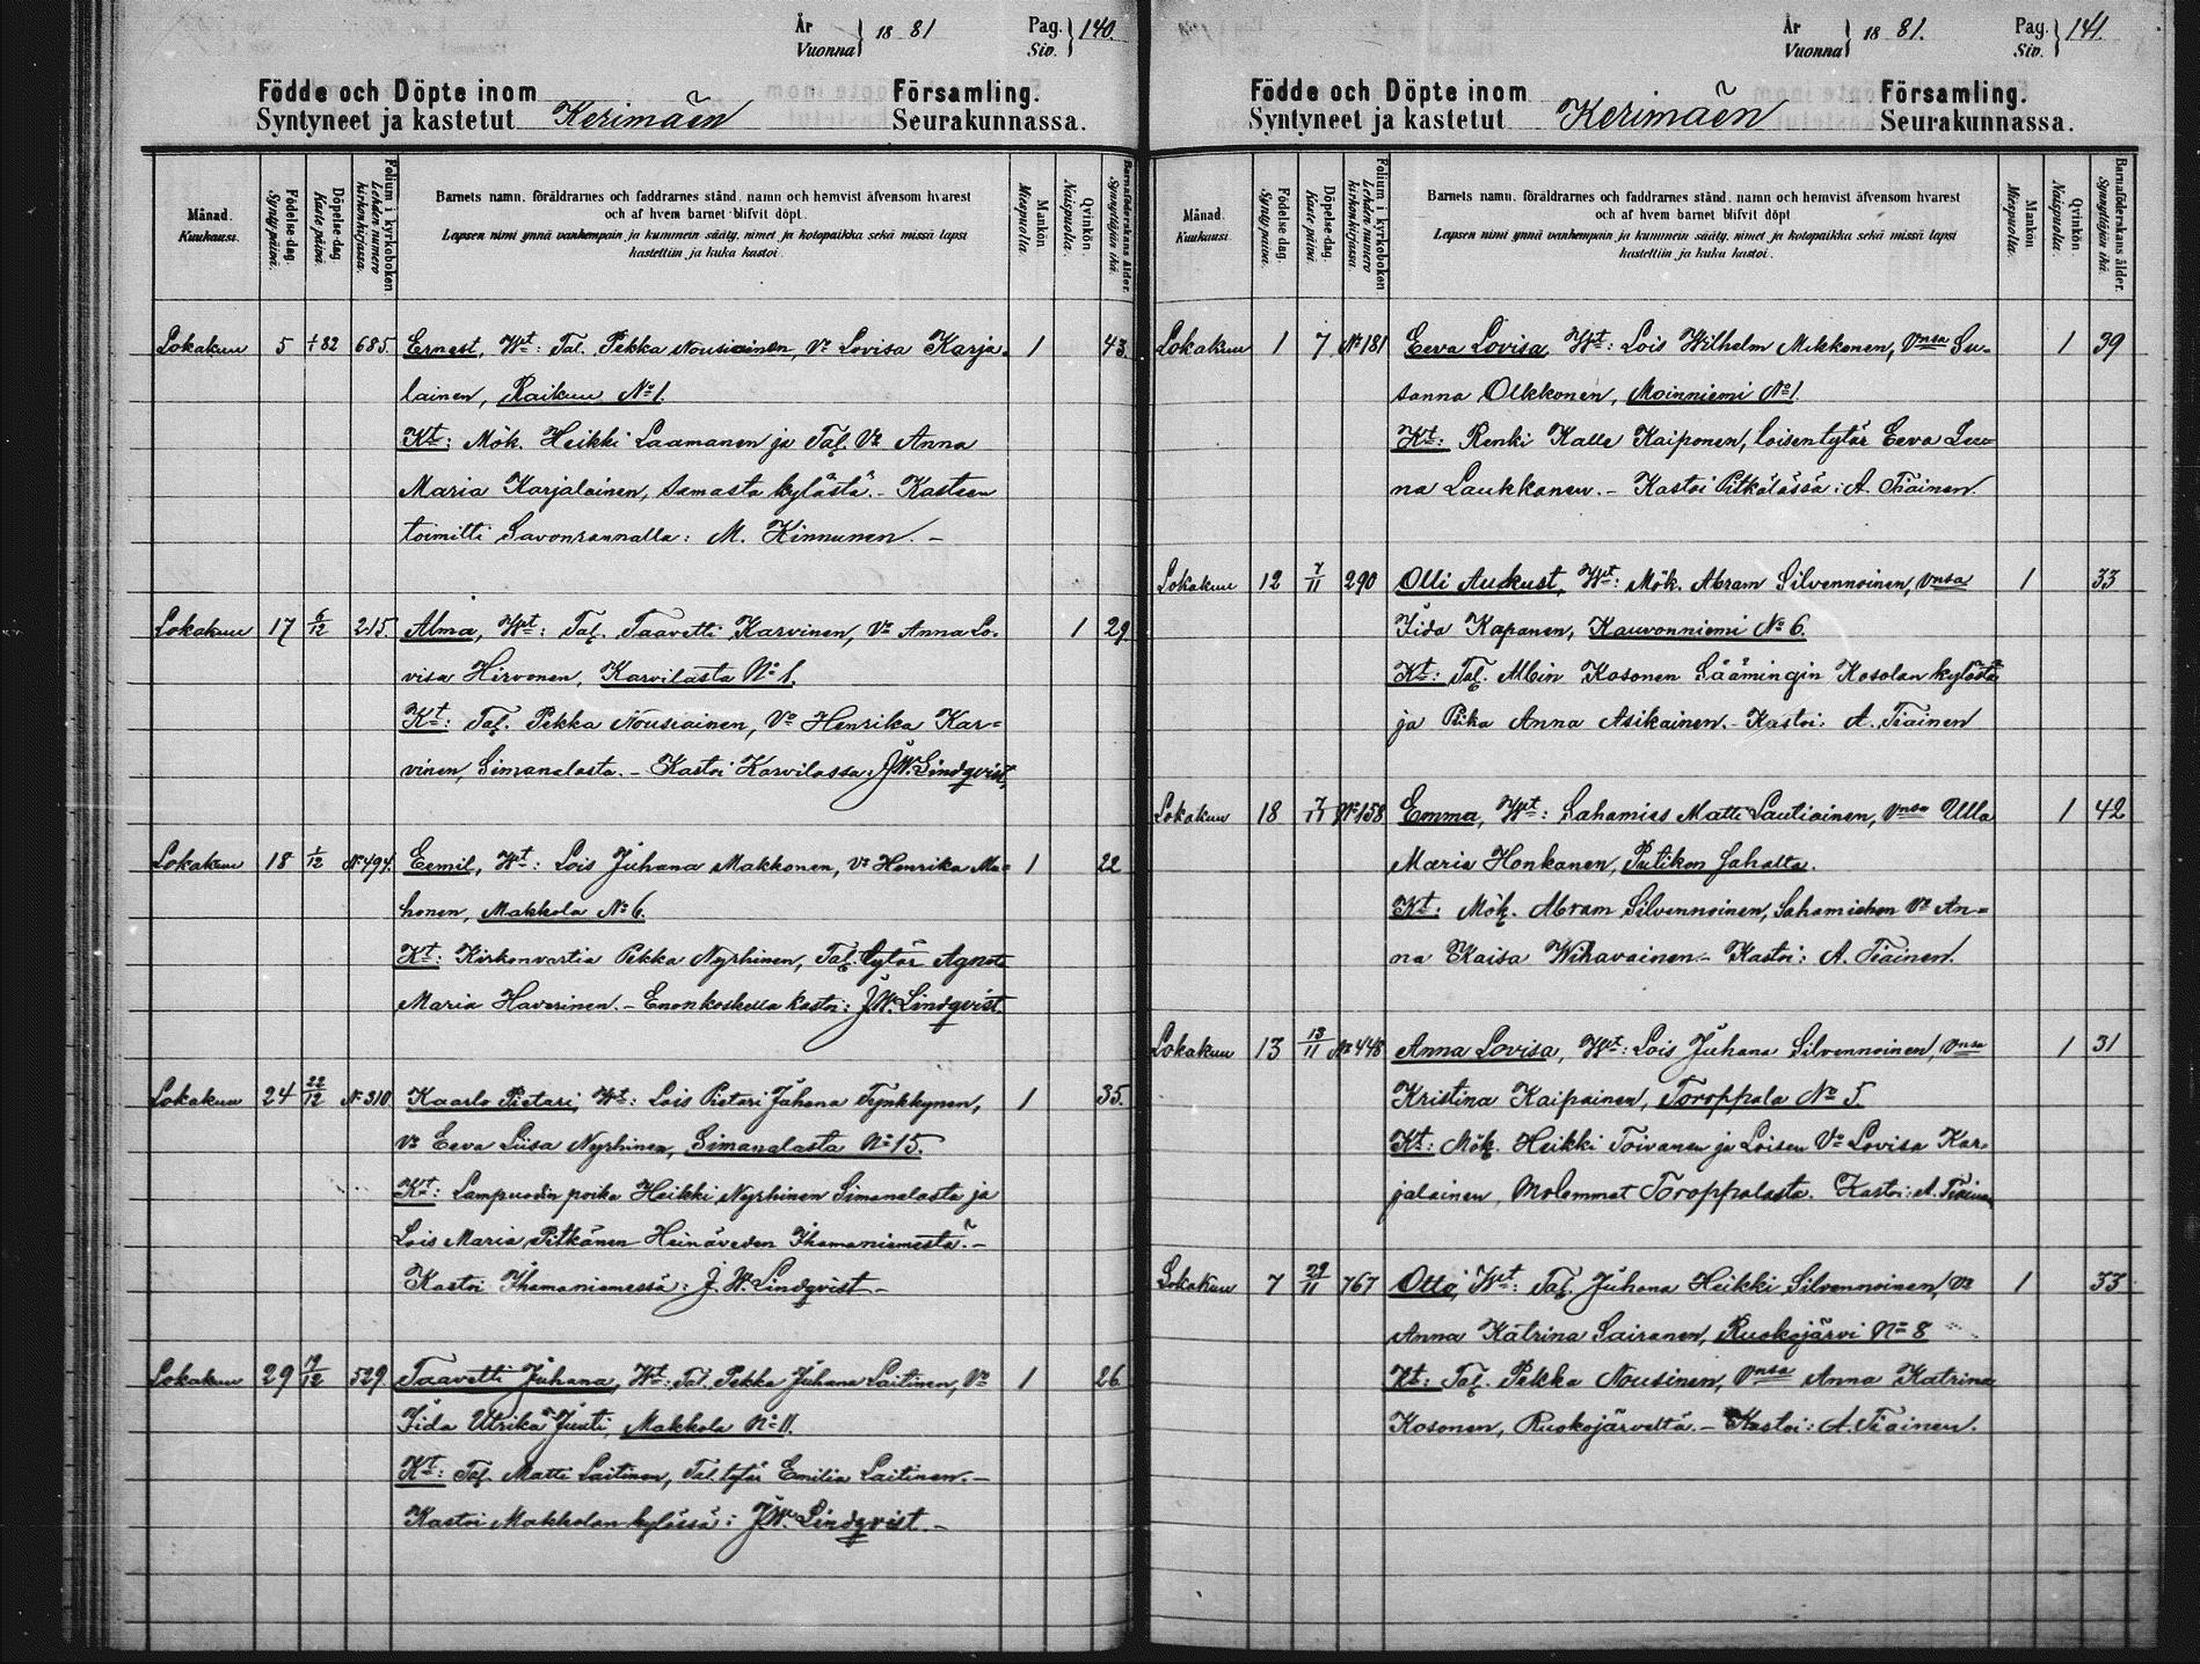 År
Vuonna } 18 81
Pag.
Siv. } 140.
Födde och Döpte inom Församling.
Syntyneet ja kastetut Kerimäen Seurakunnassa.
Månad. Kuukausi.
Födelse-dag. Synty-päivä.
Döpelse-dag. Kaste-päivä.
Folium i kyrkoboken. Lehden numero kirkonkirjassa.
Barnets namn, föräldrarnes och faddrarnes stånd, namn och hemvist äfvensom hvarest
och af hvem barnet blifvit döpt.
Lapsen nimi ynnä vanhempain ja kummein sääty, nimet ja kotopaikka sekä missä lapsi
kastettiin ja kuka kastoi.
Mankön. Miespuolta.
Qvinkön. Naispuolta.
Barnaföderskans ålder. Synnyttäjän ikä.
Lokakuu 5 1/1 82 685. Ernest, Wt: Tal. Pekka Nousiainen, Vo Lovisa Karja- 1 43.
lainen, Raikuu No 1.
Kt: Mök. Heikki Laamanen ja Tal. Vo Anna
Maria Karjalainen, samasta kylästä. - Kasteen
toimitti Savonrannalla: M. Kinnunen. -
Lokakuu 17 6/12 215. Alma, Wt: Tal. Taavetti Karvinen, Vo Anna Lo- 1 29
visa Hirvonen, Karvilasta No 1.
Kt: Tal. Pekka Nousiainen, Vo Henrika Kar-
vinen, Simanalasta. - Kastoi Karvilassa: J.W. Lindqvist,
Lokakuu 18 1/12 No 494. Eemil, Wt: Lois Juhana Makkonen, Vo Henrika Mu- 1 22
honen, Makkola No 6.
Kt: Kirkonvartia Pekka Nyrhinen, Tal. tytär Agneta
Maria Haverinen. - Enonkoskella kastoi: J.W. Lindqvist.
Lokakuu 24 22/12 No 310 Kaarlo Pietari, Wt: Lois Pietari Juhana Tynkkynen, 1 35.
Vo Eeva Liisa Nyrhinen, Simanalasta No 15.
Kt: Lampuodin poika Heikki Nyrhinen Simanalasta ja
Lois Maria Pitkänen Heinäveden Ihamaniemestä. -
Kastoi Ihamaniemessä: J. W. Lindqvist -
Lokakuu 29 19/12 529 Taavetti Juhana, Wt: Tal. Pekka Juhana Laitinen, Vo 1 26
Iida Ulrika Juuti, Makkola No 11.
Kt: Tal. Matti Laitinen, Tal. tytär Emilia Laitinen. -
Kastoi Makkolan kylässä: J.W. Lindqvist -
År
Vuonna } 18 81.
Pag.
Siv. } 141.
Födde och Döpte inom Församling.
Syntyneet ja kastetut Kerimäen Seurakunnassa.
Månad. Kuukausi.
Födelse-dag. Synty-päivä.
Döpelse-dag. Kaste-päivä.
Folium i kyrkoboken. Lehden numero kirkonkirjassa.
Barnets namn, föräldrarnes och faddrarnes stånd, namn och hemvist äfvensom hvarest
och af hvem barnet blifvit döpt
Lapsen nimi ynnä vanhempain ja kummein sääty, nimet ja kotopaikka sekä missä lapsi
kastettiin ja kuka kastoi.
Mankön. Miespuolta.
Qvinkön. Naispuolta.
Barnaföderskans ålder. Synnyttäjän ikä.
Lokakuu 1 7 No 181 Eeva Lovisa, Wt: Lois Wilhelm Mikkonen, Vnsa Su- 1 39
sanna Olkkonen, Moinniemi No 1.
Kt: Renki Kalle Kaiponen, loisentytär Eeva Lee-
na Laukkanen. - Kastoi Pitkälässä: A. Tiainen.
Lokakuu 12 7/11 290 Olli Aukust, Wt: Mök. Abram Silvennoinen, Vnsa 1 33
Iida Kapanen, Kauvonniemi No 6.
Kt: Tal. Albin Kosonen Säämingin Kosolan kylästä
ja Piika Anna Asikainen. - Kastoi: A. Tiainen
Lokakuu 18 7/11 No 158 Emma, Wt: Sahamies Matti Lautiainen, Vnsa Ulla 1 42
Maria Honkanen, Putikon Sahalta.
Kt: Mök. Abram Silvennoinen, Sahamiehen Vo An-
na Kaisa Wihavainen - Kastoi: A. Tiainen.
Lokakuu 13 13/11 No 448 Anna Lovisa, Wt: Lois Juhana Silvennoinen, Vnsa 1 31
Kristina Kaipainen, Toroppala No 5.
Kt: Mök. Heikki Toivanen ja Loisen Vo Lovisa Kar-
jalainen, Molemmat Toroppalasta. Kastoi: A. Tiainen
Lokakuu 7 29/11 767 Otto, Wt: Tal. Juhana Heikki Silvennoinen, Vo 1 33
Anna Katrina Sairanen, Ruokojärvi No 8
Kt: Tal. Pekka Nousinen, Vnsa Anna Katrina
Kosonen, Ruokojärveltä. - Kastoi: A. Tiainen.